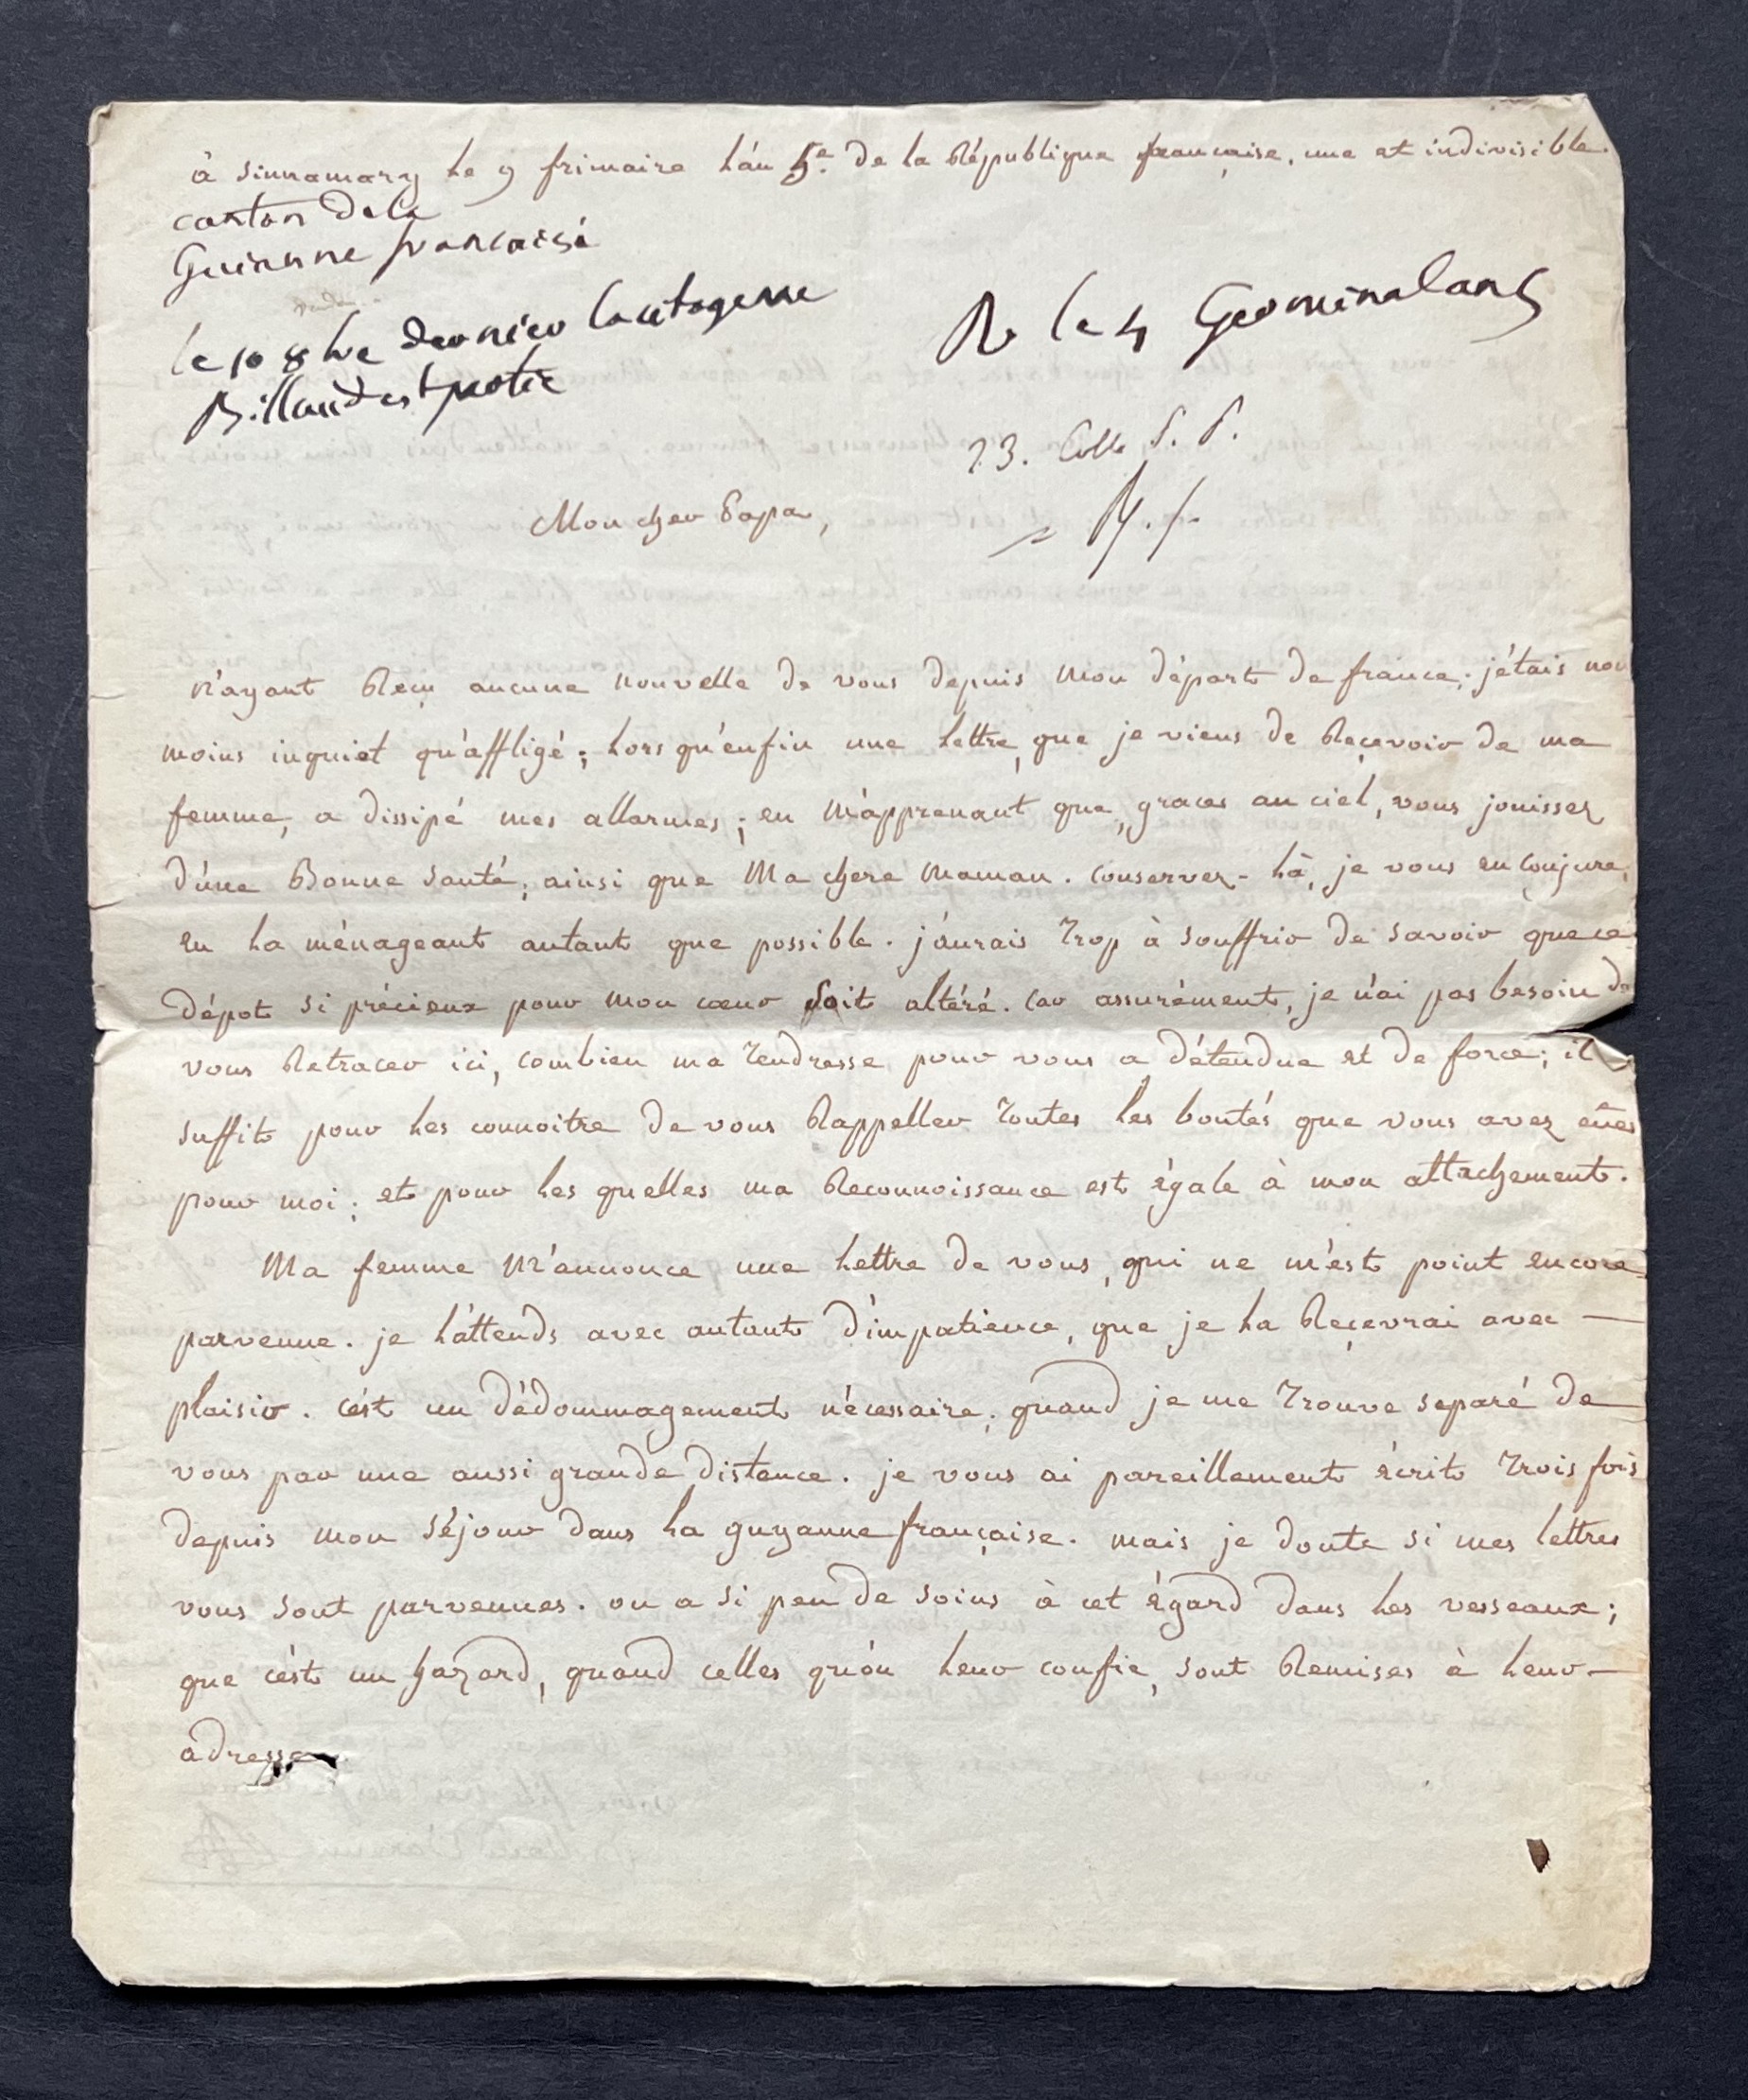 à sinnamary le 9 frimaire l'an 5e. de la République française, une et indivisible.
canton de la
Guianne francaise
le 10 8bre dernier
Billaud est
R le 4 Germinal an 5
23.
Mon cher Papa,
N'ayant Reçu aucune nouvelle de vous depuis mon départ de france; j'étais non
moins inquiet qu'affligé; lors qu'enfin une lettre, que je viens de Recevoir de ma
femme, a dissipé mes allarmes; en m'apprenant que, graces au ciel, vous jouissez
d'une Bonne santé, ainsi que Ma chere maman. conservez-là, je vous en conjure,
en la ménageant autant que possible. j'aurais Trop à souffrir de savoir que ce
dépot si précieux pour mon cœur soit altéré. car assurément, je n'ai pas besoin de
vous Retracer ici, combien ma Tendresse pour vous a d'étendue et de force; il
suffit pour les connoitre de vous Rappeller Toutes les bontés que vous avez eües
pour moi; et pour les quelles ma Reconnoissance est égale à mon attachement.
Ma femme M'annonce une lettre de vous, qui ne m'est point encore
parvenue. je l'attends avec autant d'impatience, que je la Recevrai avec —
plaisir. c'est un dédommagement nécessaire, quand je me Trouve separé de
vous par une aussi grande distance. je vous ai pareillement écrit Trois fois
depuis mon séjour dans la guyanne française. mais je doute si mes lettres
vous sont parvenues. on a si peu de soins à cet égard dans les vesseaux;
que c'est un hazard, quand celles qu'on leur confie, sont Remises à leur —
adresse.